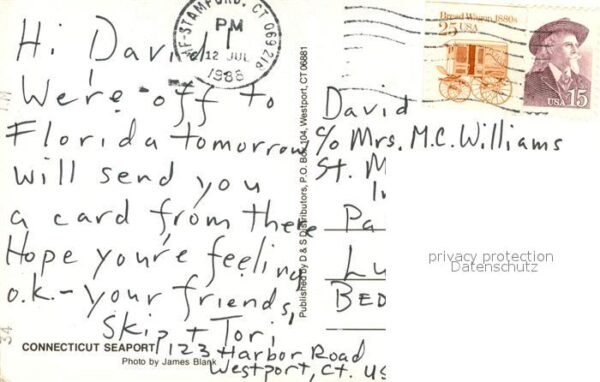 Hi David!
We're off to
Florida tomorrow
will send you
a card from there
Hope you're feeling
o.k. - your friends,
Skip + Tori
123 Harbor Road
Westport, Ct. US
CONNECTICUT SEAPORT
Photo by James Blank
34
Published by D & S Distributors, P.O. Box 104, Westport, CT 06881
STAMFORD, CT 069
PM
12 JUL
1988
Bread Wagon 1880s
25 USA
USA 15
David
c/o Mrs. M.C. Williams
St. M
In
Pa
Lu
BED
privacy protection
Datenschutz